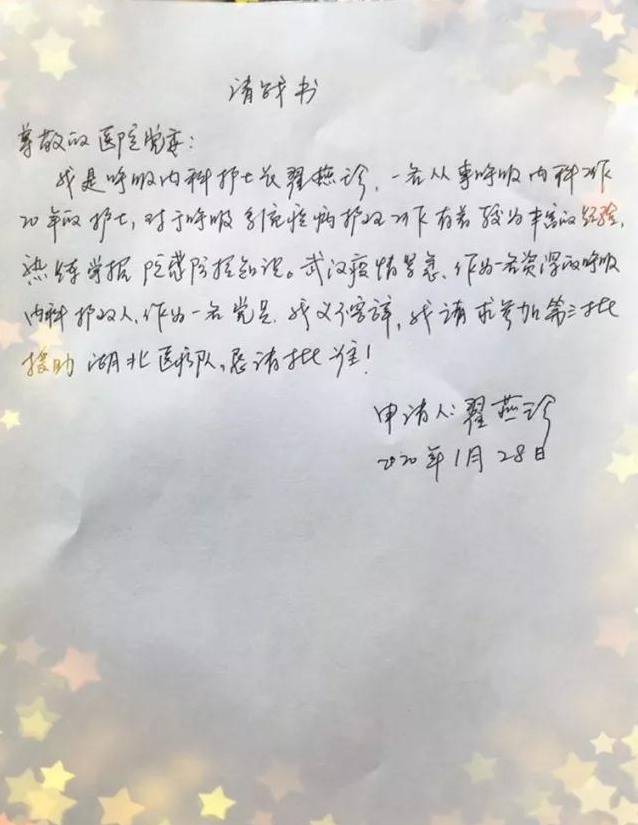 请战书
尊敬的医院党委：
我是呼吸内科护士长翟燕珍，一名从事呼吸内科工作
20年的护士，对于呼吸系统疾病护理工作有着较为丰富的经验，
熟练掌握院感防控知识。武汉疫情紧急，作为一名资深的呼吸
内科护理人，作为一名党员，我义不容辞，我请求参加第三批
援助湖北医疗队，恳请批准！
申请人：翟燕珍
2020年1月28日